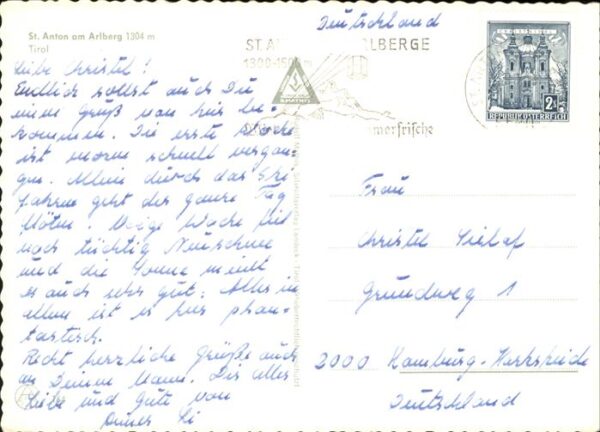 St. Anton am Arlberg 1304 m
Tirol
Liebe Christel!
Endlich sollst auch Du
einen Gruß von hier be-
kommen. Die erste Woche
ist enorm schnell vergan-
gen. Allein durch das Ski-
fahren geht der ganze Tag
flöten. Vorige Woche fiel
noch tüchtig Neuschnee
und die Sonne meint
es auch sehr gut: Alles in
allem ist es hier phan-
tastisch.
Recht herzliche Grüße auch
an Deinen Mann. Dir alles
Liebe und Gute von
Deutschland
ST. ARLBERGE
1300-
merfrische
2
REPUBLIK ÖSTERREICH
Frau
Christel Sielaf
Grundweg 1
2000 Hamburg-Harksheide
Deutschland